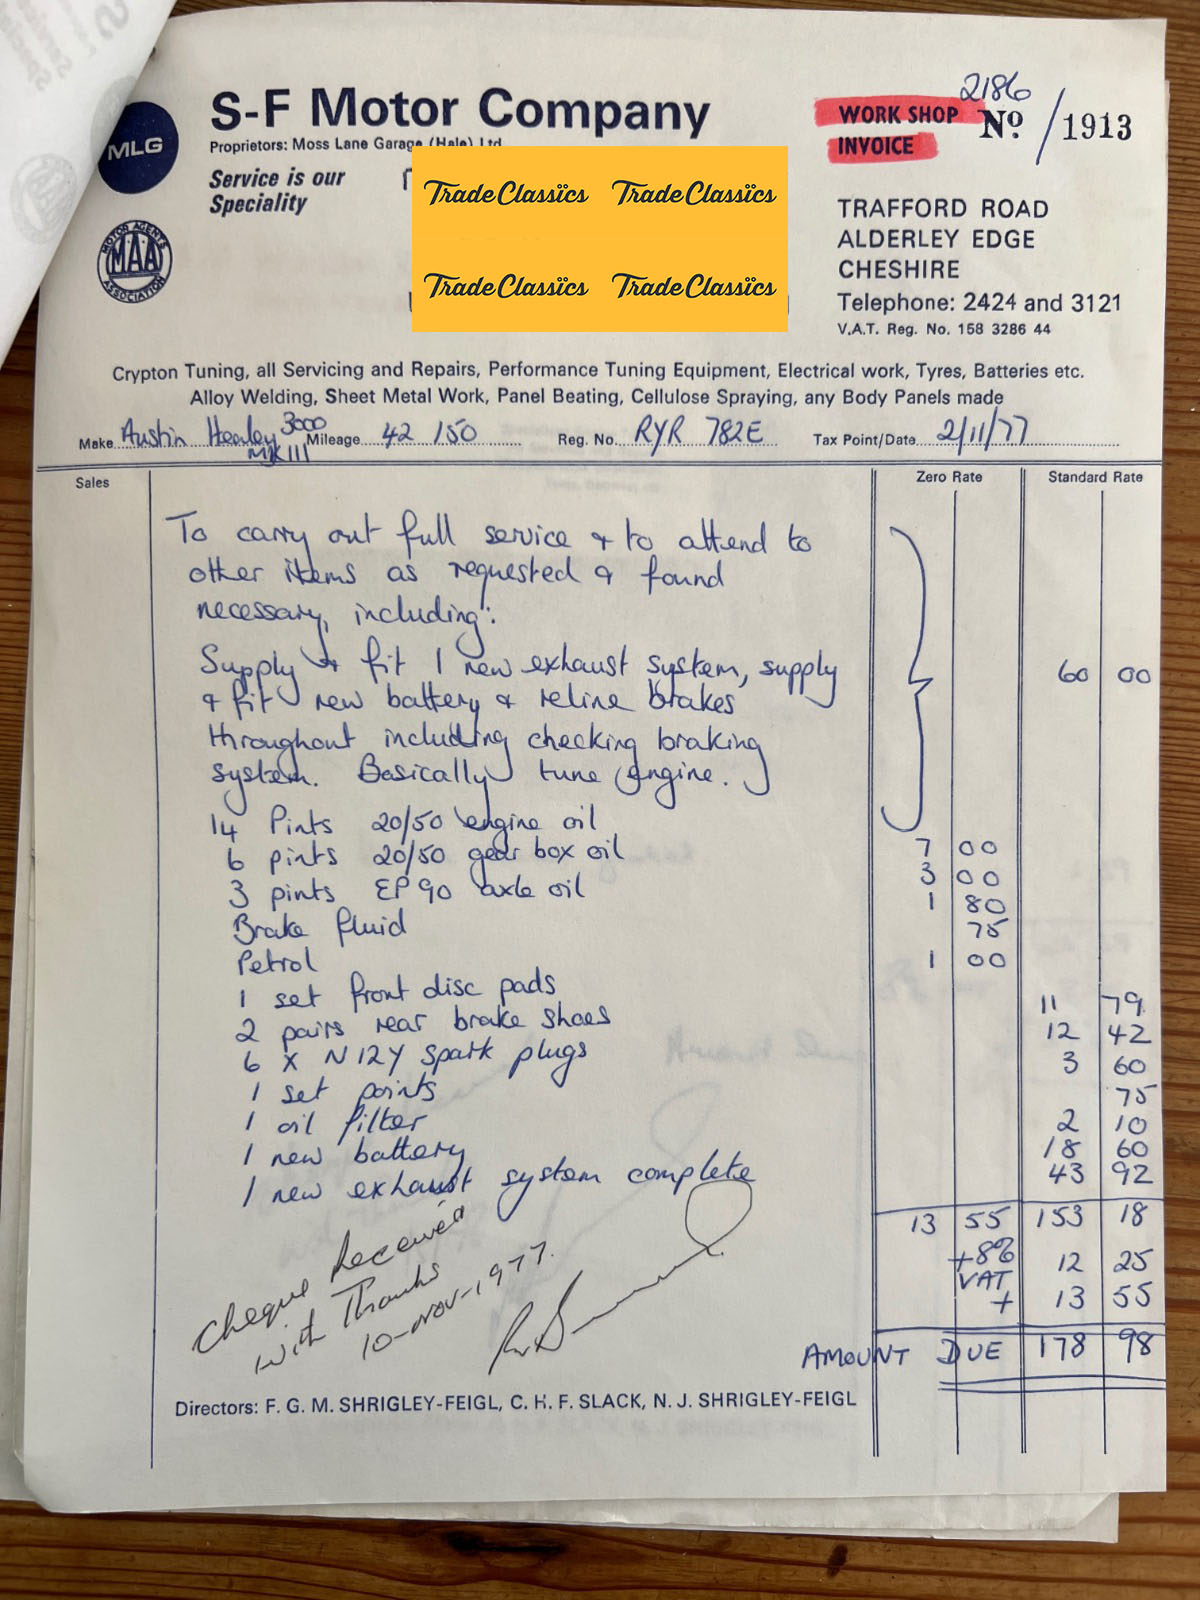 MLG
S-F Motor Company
Proprietors: Moss Lane Garage (Hale) Ltd
Service is our
Speciality
MOTOR AGENTS
MAA
ASSOCIATION
TradeClassics TradeClassics
TradeClassics TradeClassics
WORK SHOP
INVOICE
2186
No / 1913
TRAFFORD ROAD
ALDERLEY EDGE
CHESHIRE
Telephone: 2424 and 3121
V.A.T. Reg. No. 158 3286 44
Crypton Tuning, all Servicing and Repairs, Performance Tuning Equipment, Electrical work, Tyres, Batteries etc.
Alloy Welding, Sheet Metal Work, Panel Beating, Cellulose Spraying, any Body Panels made
Make Austin Healey 3000 MK III Mileage 42 150 Reg. No. RYR 782E Tax Point/Date 2/11/77
Sales Zero Rate Standard Rate
To carry out full service & to attend to
other items as requested & found
necessary, including:
Supply & fit 1 new exhaust system, supply 60 00
& fit new battery & reline brakes
throughout including checking braking
system. Basically tune engine.
14 Pints 20/50 engine oil 7 00
6 pints 20/50 gear box oil 3 00
3 pints EP 90 axle oil 1 80
Brake fluid 75
Petrol 1 00
1 set front disc pads 11 79
2 pairs rear brake shoes 12 42
6 x N12Y spark plugs 3 60
1 set points 75
1 oil filter 2 10
1 new battery 18 60
1 new exhaust system complete 43 92
13 55 153 18
+8% VAT 12 25
+ 13 55
AMOUNT DUE 178 98
Cheque Received
with Thanks
10-NOV-1977.
Directors: F. G. M. SHRIGLEY-FEIGL, C. H. F. SLACK, N. J. SHRIGLEY-FEIGL